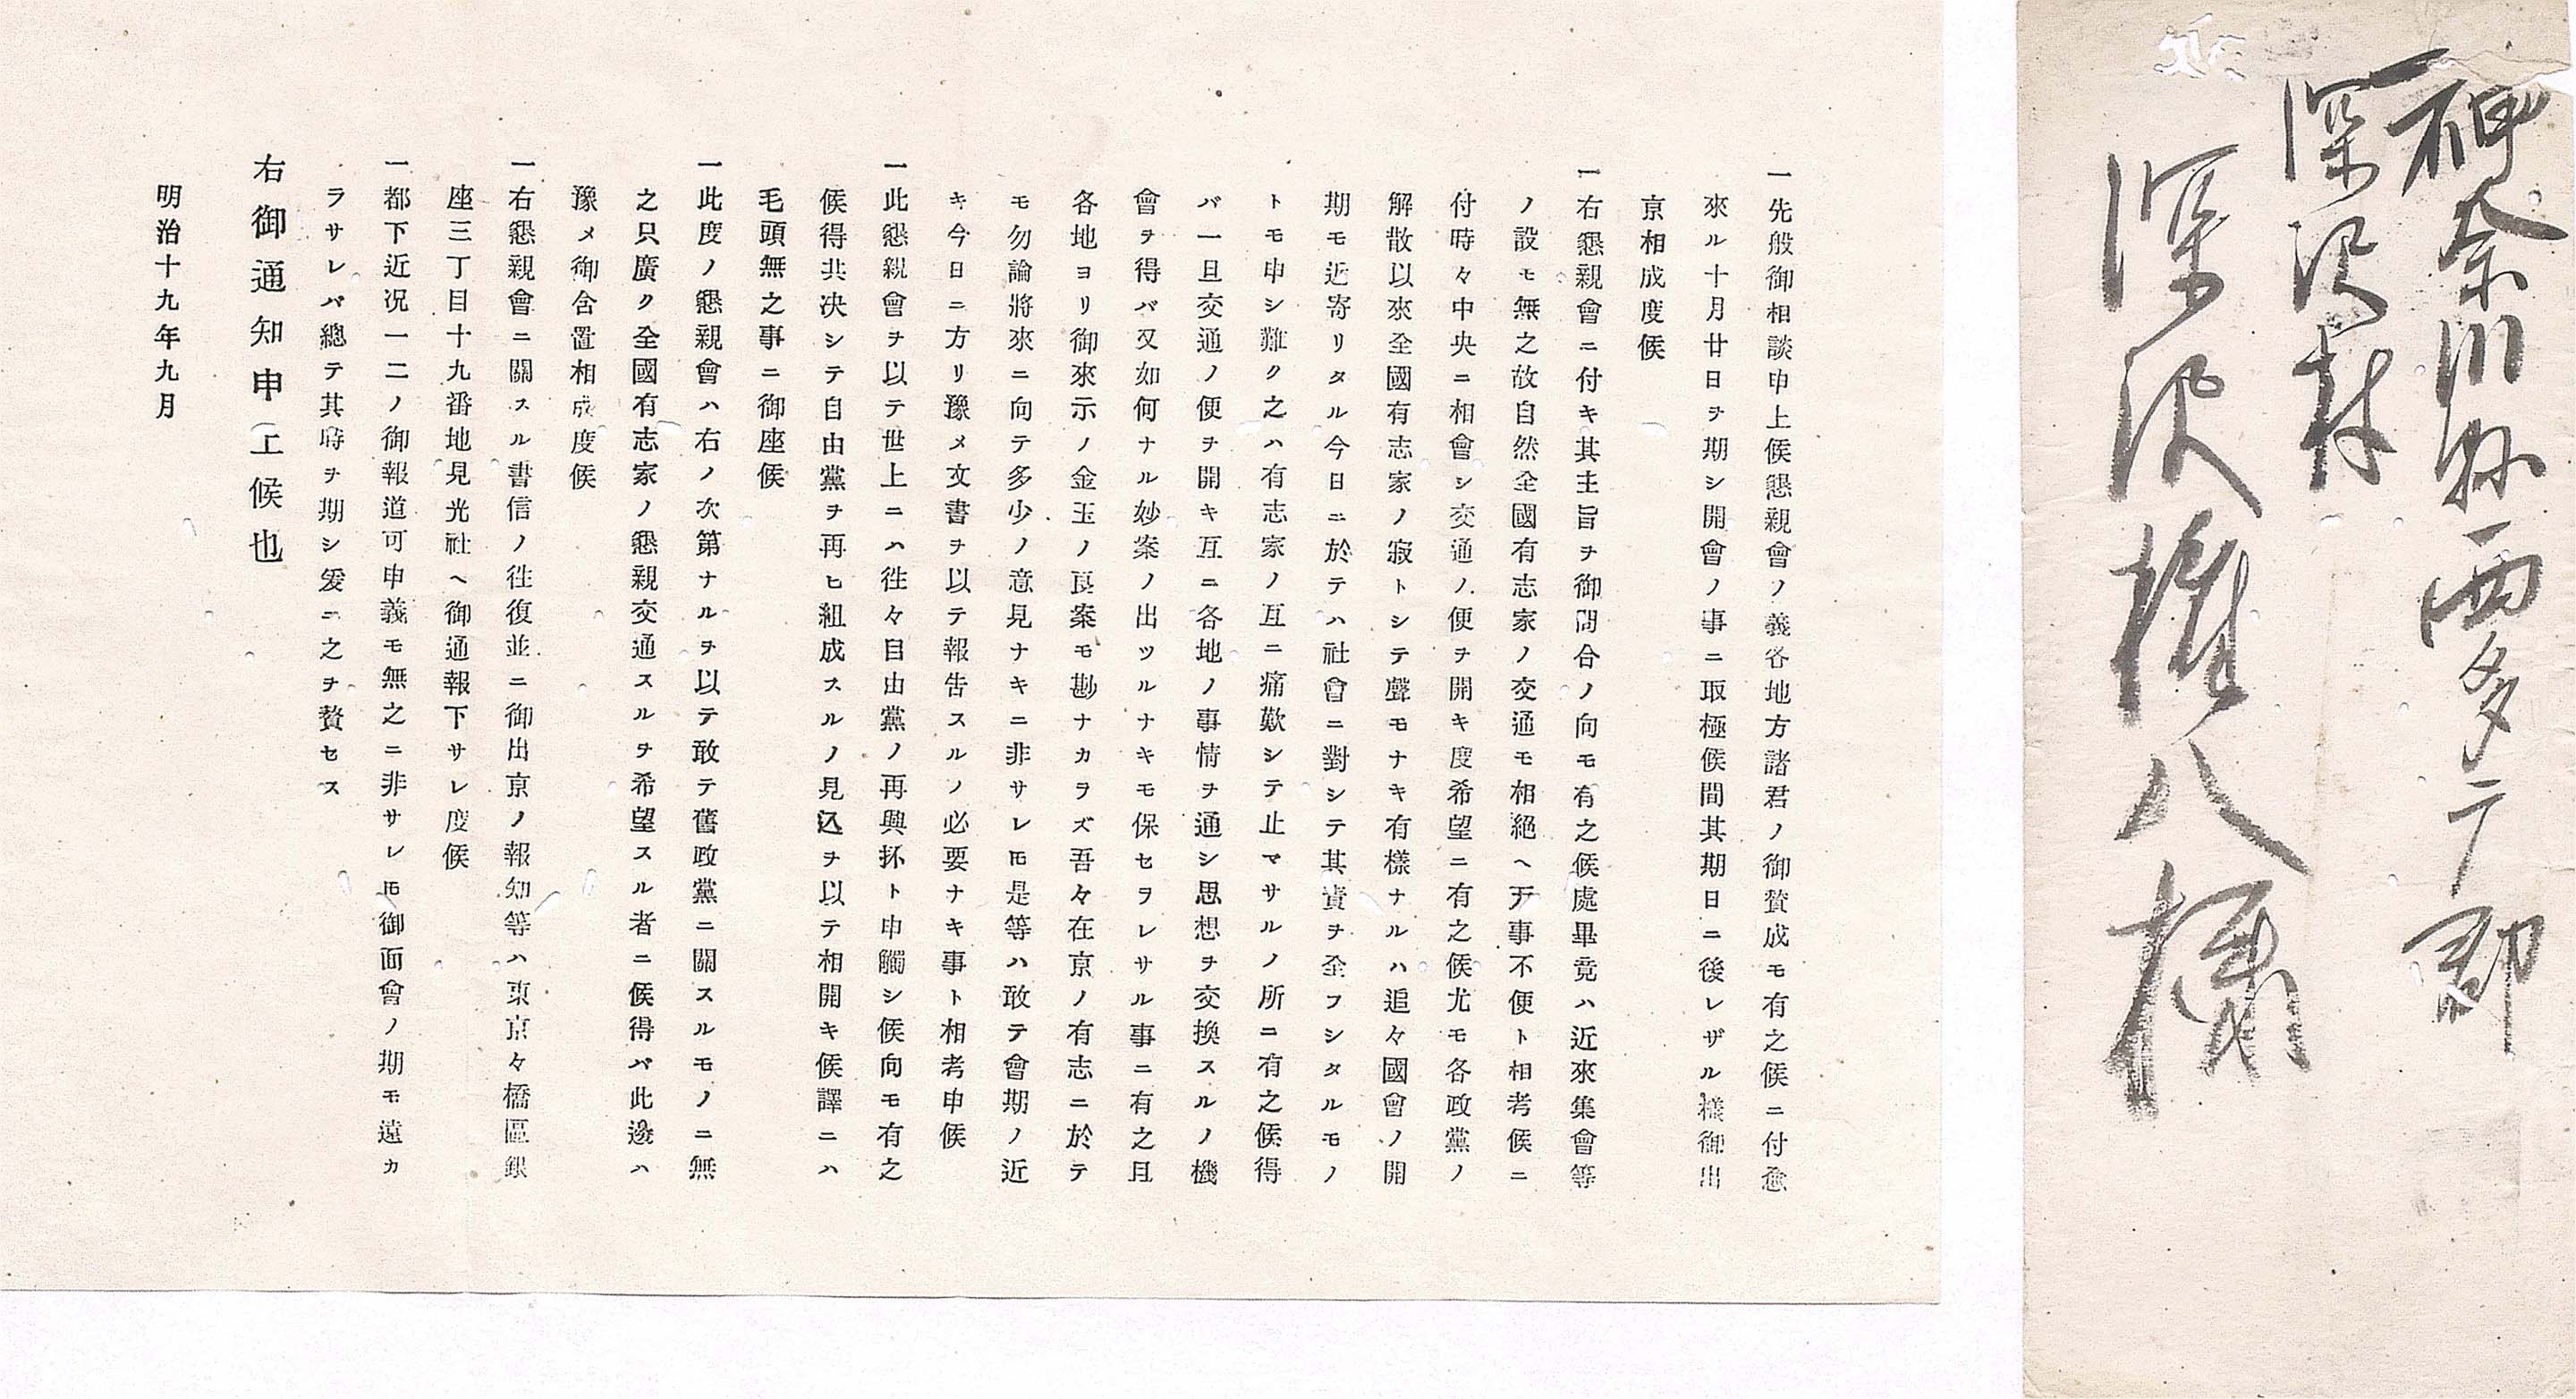 神奈川縣西多广郡
深沢村
深沢権八様
一先般御相談申上候懇親會ノ義各地方諸君ノ御賛成モ有之候ニ付愈
來ル十月廿日ヲ期シ開會ノ事ニ取極候間其期日ニ後レザル樣御出
京相成度候
一右懇親會ニ付キ其主旨ヲ御問合ノ向モ有之候處畢竟ハ近來集會等
ノ設モ無之故自然全國有志家ノ交通モ相絕ヘ万事不便ト相考候ニ
付時々中央ニ相會シ交通ノ便ヲ開キ度希望ニ有之候尤モ各政黨ノ
解散以來全國有志家ノ寂トシテ聲モナキ有樣ナルハ追々國會ノ開
期モ近寄リタル今日ニ於テハ社會ニ對シテ其責ヲ全フシタルモノ
トモ申シ難ク之ハ有志家ノ互ニ痛歎シテ止マサルノ所ニ有之候得
バ一旦交通ノ便ヲ開キ互ニ各地ノ事情ヲ通シ思想ヲ交換スルノ機
會ヲ得バ又如何ナル妙案ノ出ツルナキモ保セヲレサル事ニ有之且
各地ヨリ御來示ノ金玉ノ良案モ尠ナカラズ吾々在京ノ有志ニ於テ
モ勿論將來ニ向テ多少ノ意見ナキニ非サレ𪜈是等ハ敢テ會期ノ近
キ今日ニ方リ豫メ文書ヲ以テ報告スルノ必要ナキ事ト相考申候
一此懇親會ヲ以テ世上ニハ徃々自由黨ノ再興抔ト申觸シ候向モ有之
候得共决シテ自由黨ヲ再ヒ組成スルノ見込ヲ以テ相開キ候譯ニハ
毛頭無之事ニ御座候
一此度ノ懇親會ハ右ノ次第ナルヲ以テ敢テ舊政黨ニ關スルモノニ無
之只廣ク全國有志家ノ懇親交通スルヲ希望スル者ニ候得バ此邊ハ
豫メ御含置相成度候
一右懇親會ニ關スル書信ノ徃復並ニ御出京ノ報知等ハ東京々橋區銀
座三丁目十九番地見光社ヘ御通報下サレ度候
一都下近况一二ノ御報道可申義モ無之ニ非サレ𪜈御面會ノ期モ遠カ
ラサレバ總テ其時ヲ期シ爰ニ之ヲ贅セス
右御通知申上候也
明治十九年九月